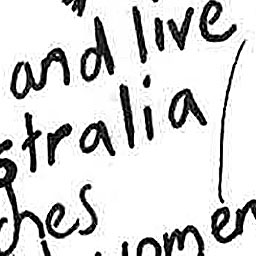 and live
stralia
ches
women